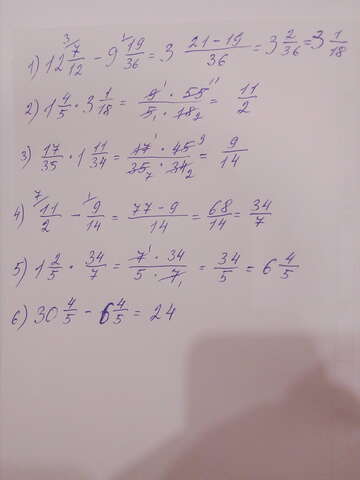 1) 12 7/12 - 9 19/36 = 3 (21 - 19)/36 = 3 2/36 = 3 1/18
2) 1 4/5 · 3 1/18 = (9 · 55)/(5 · 18) = 11/2
3) 17/35 · 1 11/34 = (17 · 45)/(35 · 34) = 9/14
4) 11/2 - 9/14 = (77 - 9)/14 = 68/14 = 34/7
5) 1 2/5 · 34/7 = (7 · 34)/(5 · 7) = 34/5 = 6 4/5
6) 30 4/5 - 6 4/5 = 24